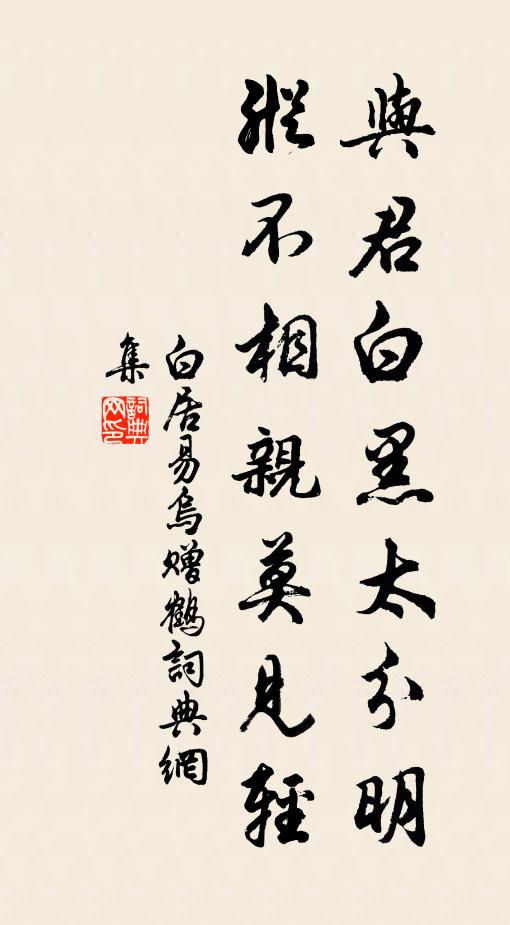 與君白黑太分明
縱不相親莫見輕
白居易烏贈鶴詞典網
集
詞典网印